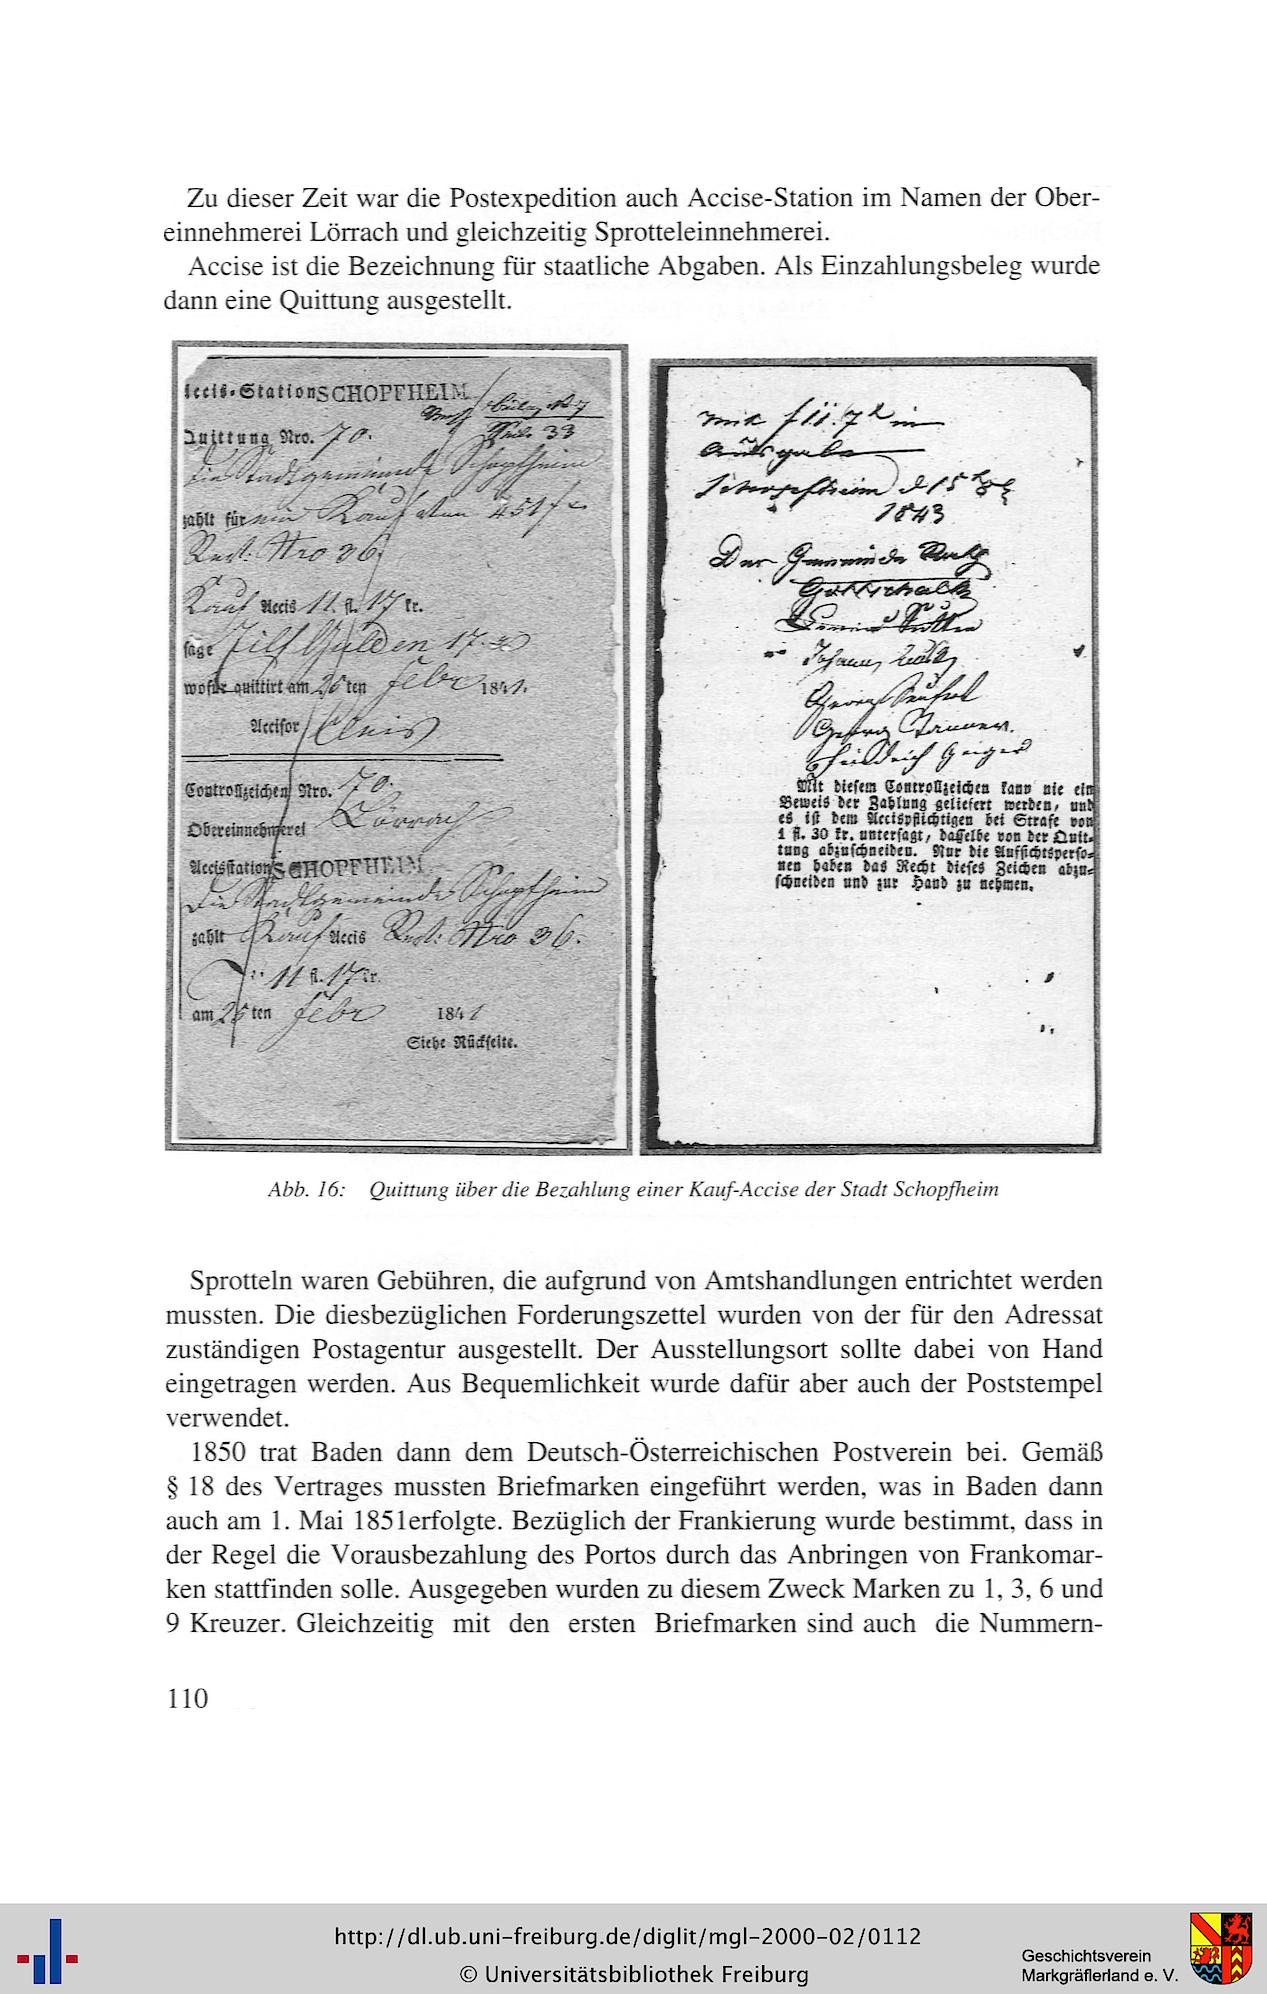 Zu dieser Zeit war die Postexpedition auch Accise-Station im Namen der Ober-
einnehmerei Lörrach und gleichzeitig Sprotteleinnehmerei.
Accise ist die Bezeichnung für staatliche Abgaben. Als Einzahlungsbeleg wurde
dann eine Quittung ausgestellt.
Accis-Station SCHOPFHEIM
Quittung Nro. 70.
Die Stadtgemeinde Schopfheim
zahlt für Kauf 451 f
Nro 36.
Kauf Accis 11. fl. 17 kr.
sage Eilf Gulden 17
wofür quittirt am 26 ten Febr 1841.
Accisor
Controllzeichen Nro. 70.
Obereinnehmerei Lörrach
Accisstation SCHOPFHEIM
Die Stadtgemeinde Schopfheim
zahlt Kauf Accis Nro 36.
11 fl. 17 kr.
am 26 ten Febr 1841
Siehe Rückseite.
in
Ausgabe
Schopfheim d 15
1843
Der Gemeinde Rath
Gottschalk
Johann
Georg
Georg
Friedrich Geiger
Mit diesem Controllzeichen kann nie ein
Beweis der Zahlung geliefert werden, und
es ist dem Accispflichtigen bei Strafe von
1 fl. 30 kr. untersagt, dasselbe von der Quit-
tung abzuschneiden. Nur die Aufsichtsperso-
nen haben das Recht dieses Zeichen abzu-
schneiden und zur Hand zu nehmen.
Abb. 16: Quittung über die Bezahlung einer Kauf-Accise der Stadt Schopfheim
Sprotteln waren Gebühren, die aufgrund von Amtshandlungen entrichtet werden
mussten. Die diesbezüglichen Forderungszettel wurden von der für den Adressat
zuständigen Postagentur ausgestellt. Der Ausstellungsort sollte dabei von Hand
eingetragen werden. Aus Bequemlichkeit wurde dafür aber auch der Poststempel
verwendet.
1850 trat Baden dann dem Deutsch-Österreichischen Postverein bei. Gemäß
§ 18 des Vertrages mussten Briefmarken eingeführt werden, was in Baden dann
auch am 1. Mai 1851erfolgte. Bezüglich der Frankierung wurde bestimmt, dass in
der Regel die Vorausbezahlung des Portos durch das Anbringen von Frankomar-
ken stattfinden solle. Ausgegeben wurden zu diesem Zweck Marken zu 1, 3, 6 und
9 Kreuzer. Gleichzeitig mit den ersten Briefmarken sind auch die Nummern-
110
http://dl.ub.uni-freiburg.de/diglit/mgl-2000-02/0112
© Universitätsbibliothek Freiburg
Geschichtsverein
Markgräflerland e. V.